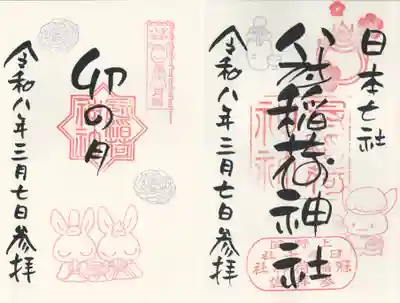 日本七社
冠稲荷神社
令和八年三月七日参拝
卯の月
令和八年三月七日参拝